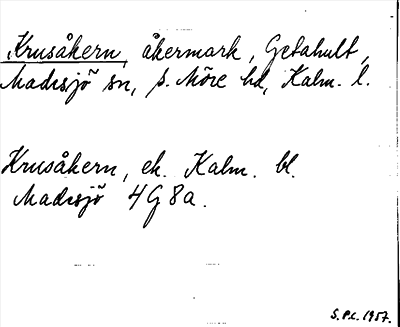 Krusåkern, åkermark, Getahult,
Madesjö sn, s. Möre hd, Kalm. l.
Krusåkern, ek. Kalm. bl.
Madesjö 4G8a.
S.P.L. 1957.